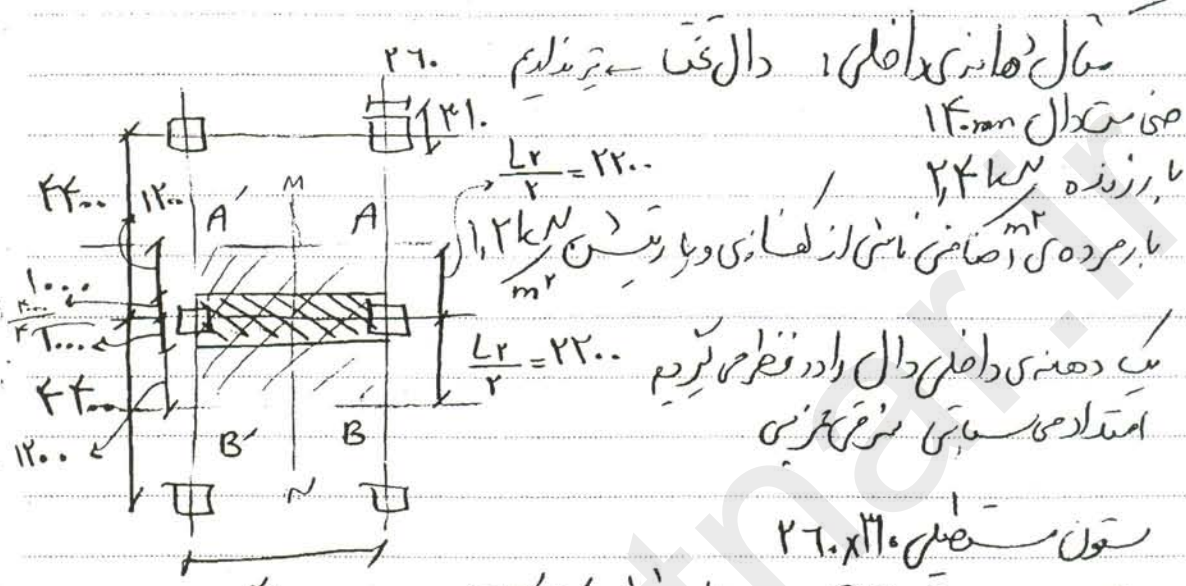 مثال دهانه‌ی داخلی: دال تخت ← تیر نداریم
ضخامت دال ۱۴۰mm
بار زنده ۲,۴ kN/m²
بار مرده‌ی اضافی ناشی از کفسازی و پارتیشن ۱,۲ kN/m²
یک دهنه‌ی داخلی دال را در نظر می‌گیریم
امتداد محاسباتی شرقی غربی
ستون مستطیلی ۲۶۰x۳۱۰
۲۶۰
۳۱۰
L۲/۲ = ۲۲۰۰
۴۴۰۰
۱۲۰۰
M
A'
A
۱۰۰۰
۱۰۰۰
L۲/۲ = ۲۲۰۰
۴۴۰۰
۱۲۰۰
B'
B
N
tnar.ir